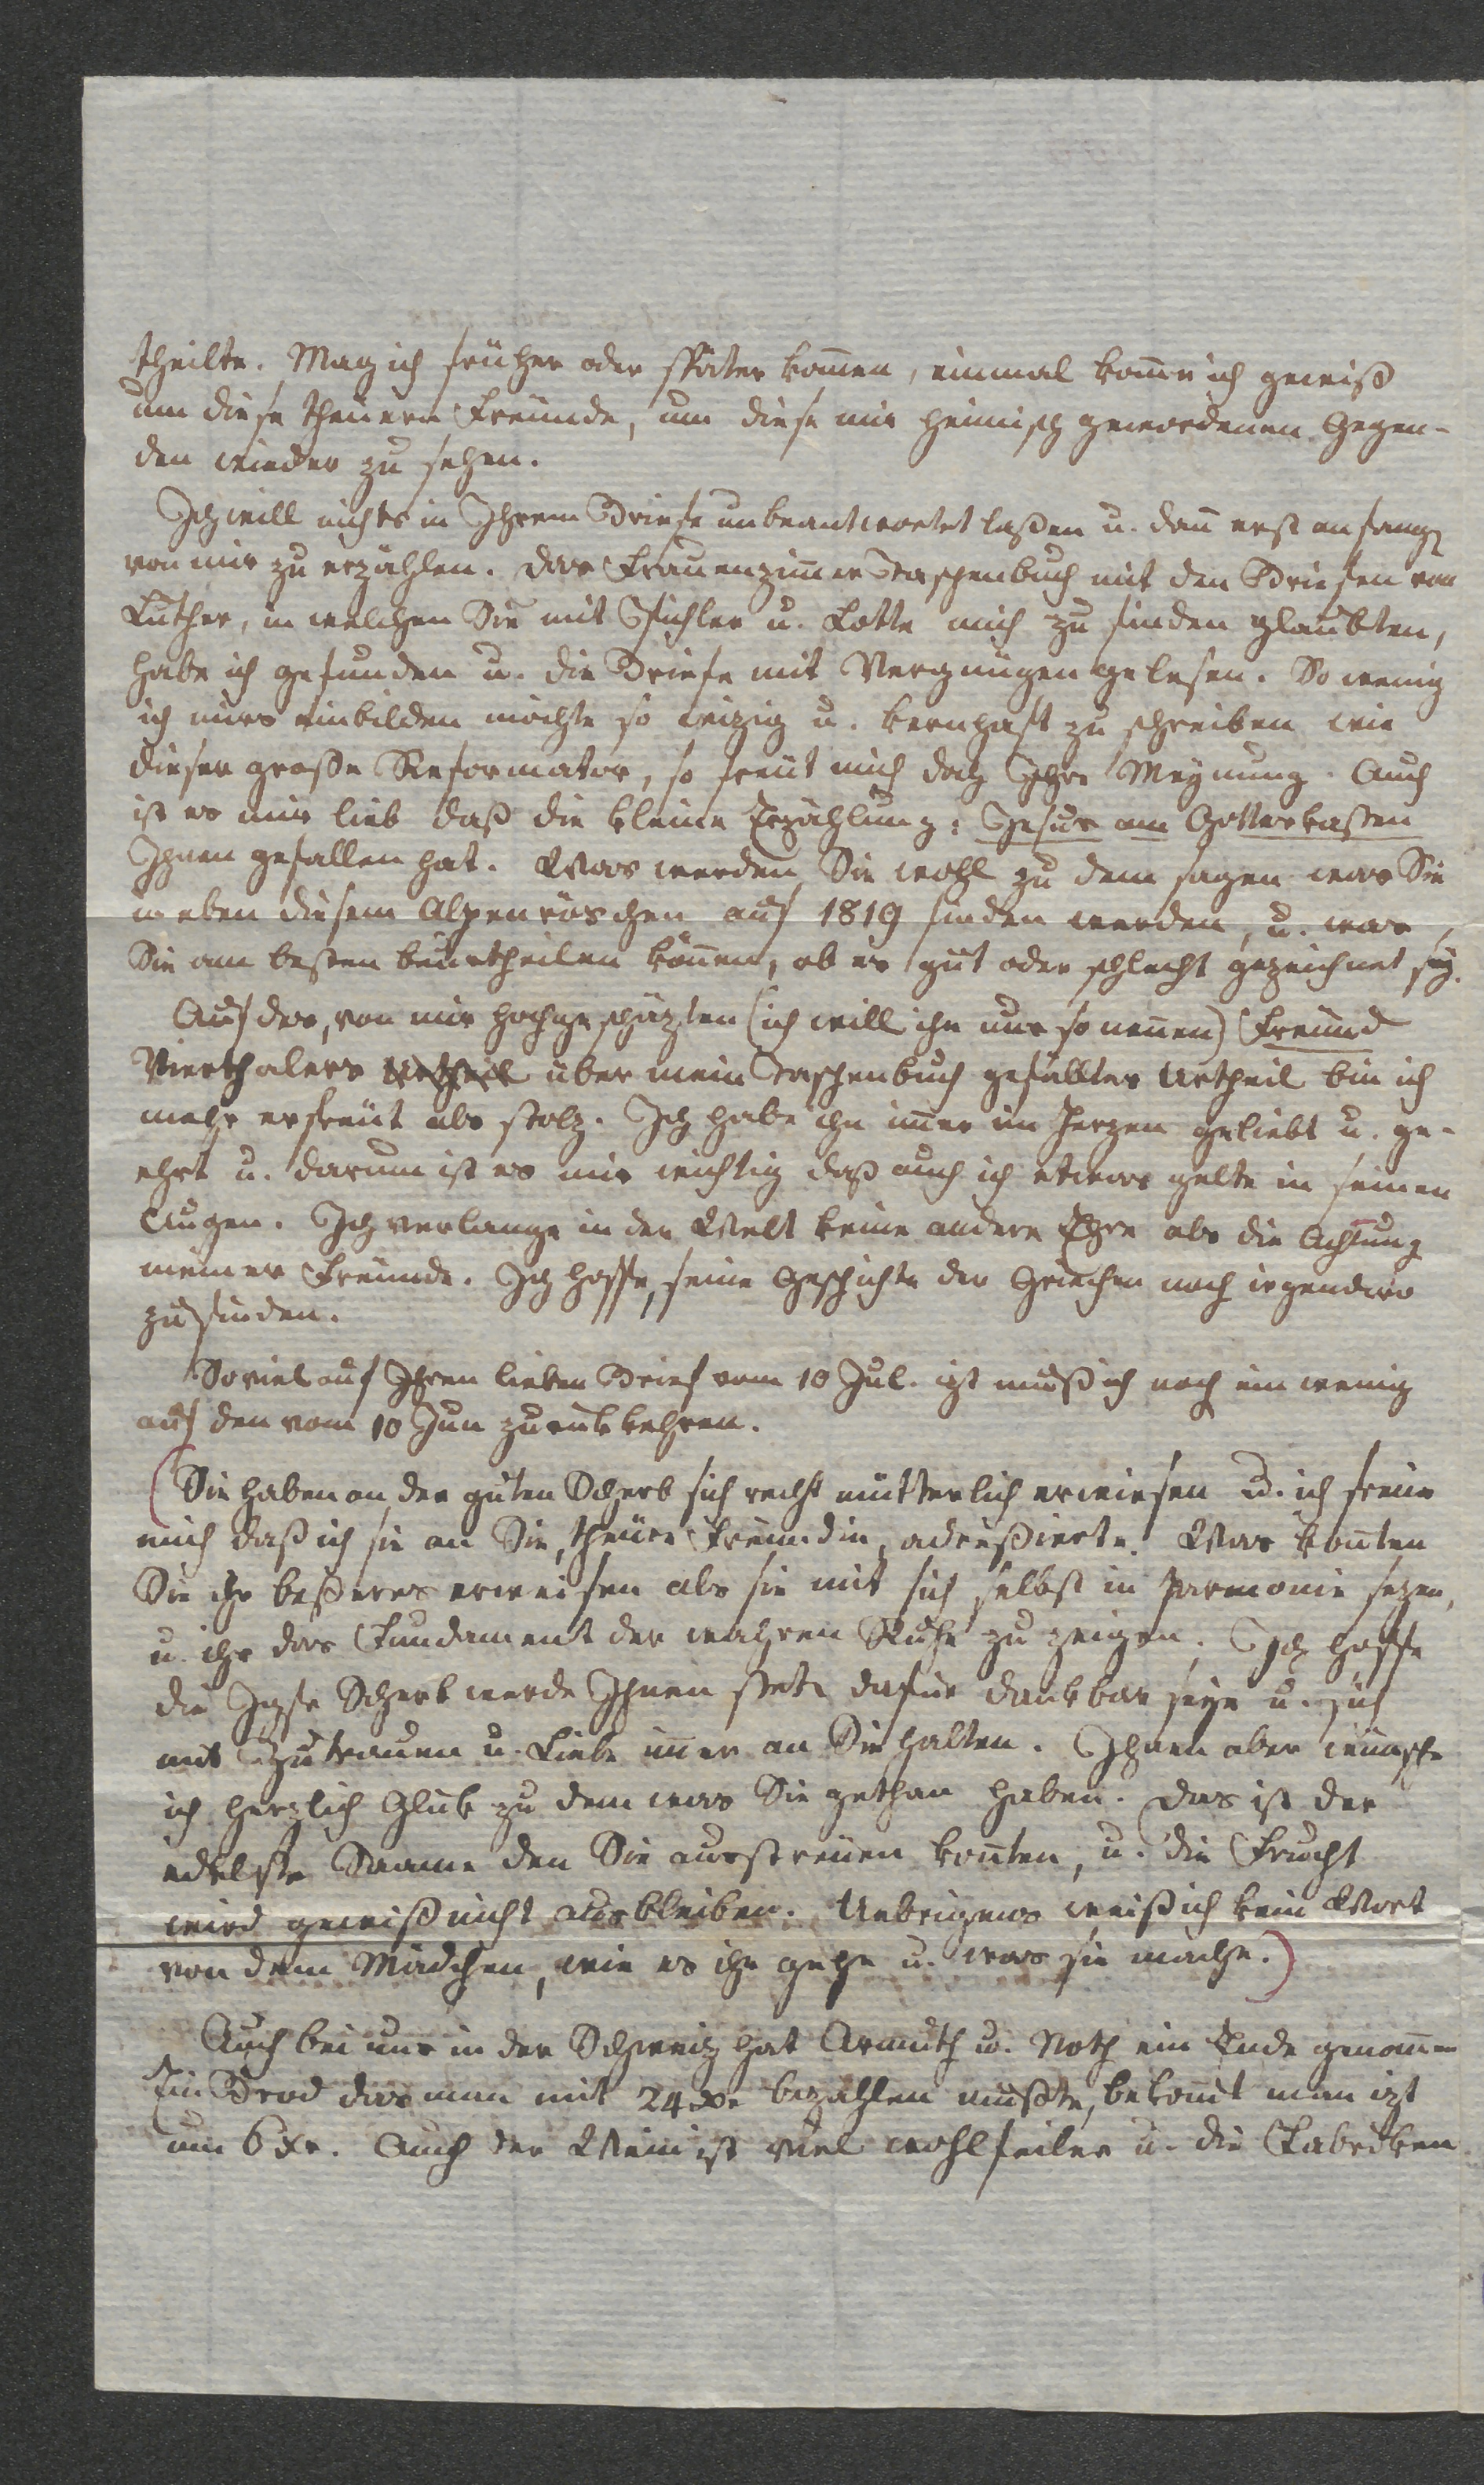 theilte. Mag ich früher oder später kom̄en, einmal kom̄e ich gewiß
um diese theuern Freunde, um diese mir heimisch gewordenen Gegen-
den wieder zu sehen.
Ich will nichts in Ihrem Briefe unbeantwortet laßen u. dan̄ erst anfangen
von mir zu erzählen. Das Frauenzim̄er Taschenbuch mit den Briefen von
Luther, in welchen Sie mit Pichler u. Lotte mich zu finden glaubten,
habe ich gefunden u. die Briefe mit Vergnügen gelesen. So wenig
ich mirs einbilden möchte so wizig u. kernhaft zu schreiben wie
dieser große Reformator, so freut mich doch Ihre Meynung. Auch
ist es mir lieb daß die kleine Erzählung: Jesus am Gotteskasten
Ihnen gefallen hat. Was werden Sie wohl zu dem sagen was Sie
in eben diesem Alpenröschen auf 1819 finden werden, u. was
Sie am besten beurtheilen kön̄en, ob es gut oder schlecht gezeichnet sey.
Auf des, von mir hochgeschäzten (ich will ihn nur so nen̄en) Freund
Vierthalers Urtheil über mein Taschenbuch gefälltes Urtheil bin ich
mehr erfreut als stolz. Ich habe ihn im̄er im Herzen geliebt u. ge-
ehrt u. darum ist es mir wichtig daß auch ich etwas gelte in seinen
Augen. Ich verlange in der Welt keine andere Ehre als die Achtung
meiner Freunde. Ich hoffe, seine Geschichte der Griechen noch irgendwo
zu finden.
Soviel auf Ihren lieben Brief vom 10 Jul. izt muß ich noch ein wenig
auf den vom 10 Jun zurükkehren.
(Sie haben an der guten Scherb sich recht mütterlich erwiesen u. ich freue
mich daß ich sie an Sie, theure Freundin, adreßierte. Was kon̄ten
Sie ihr beßeres erweisen als sie mit sich selbst in Harmonie sezen,
u. ihr das Fundament der wahren Ruhe zu zeigen. Ich hoffe
die Jgfr Scherb werde Ihnen stets dafür dankbar seyn u. sich
mit Zutrauen u. Liebe im̄er an Sie halten. Ihnen aber wünsche
ich herzlich Glük zu dem was Sie gethan haben. Das ist der
edelste Saame den Sie ausstreuen kon̄ten, u. die Frucht
wird gewiß nicht ausbleiben. Uebrigens weiß ich kein Wort
von dem Mädchen, wie es ihr gehe u. was sie mache.)
Auch bei uns in der Schweiz hat Armuth u. Noth ein Ende genom̄en
Ein Brod das man mit 24 xr bezahlen mußte, bekom̄t man izt
um 6 xr. Auch der Wein ist viel wohlfeiler u. die Fabriken